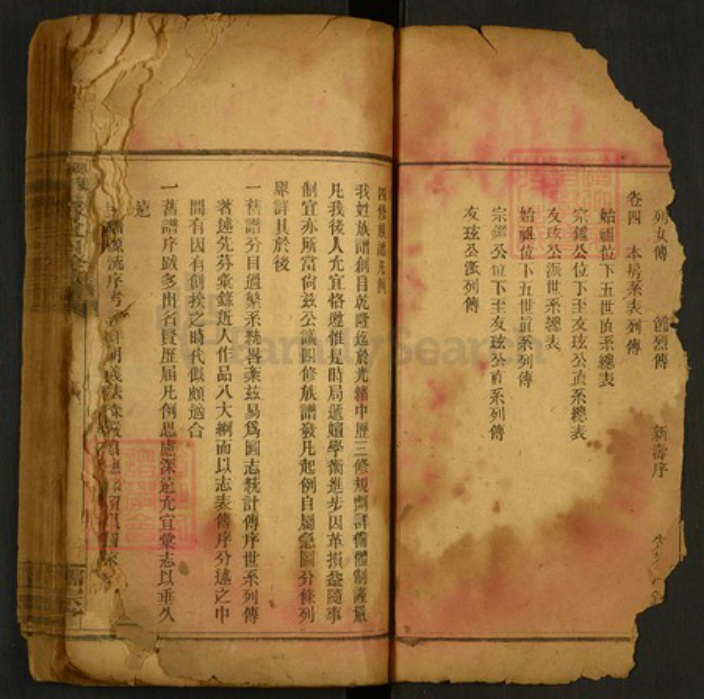 列女傳 節烈傳 新壽序
卷四 本房系表列傳
始祖位下五世直系總表
宗鑑公位下至友玹公直系總表
友玹公派世系總表
始祖位下五世直系列傳
宗鑑公位下至友玹公直系列傳
友玹公派列傳
四修族譜凡例
我姓族譜創自乾隆迄於光緒中歷三修規劃詳備體制謹嚴
凡我後人允宜恪遵惟是時局遞嬗學術進步因革損益隨事
制宜亦所當尙茲公議四修族譜發凡起例自屬急圖分條列
舉詳具於後
一舊譜分目過繁系統畧紊茲易爲圖志統計傳序世系列傳
著述先芬彙錄近人作品八大綱而以志表傳序分述之中
間有因有創揆之時代似頗適合
一舊譜序跋多出名賢歷屆凡例思慮深遠允宜彙志以垂久
遠
FamilySearch